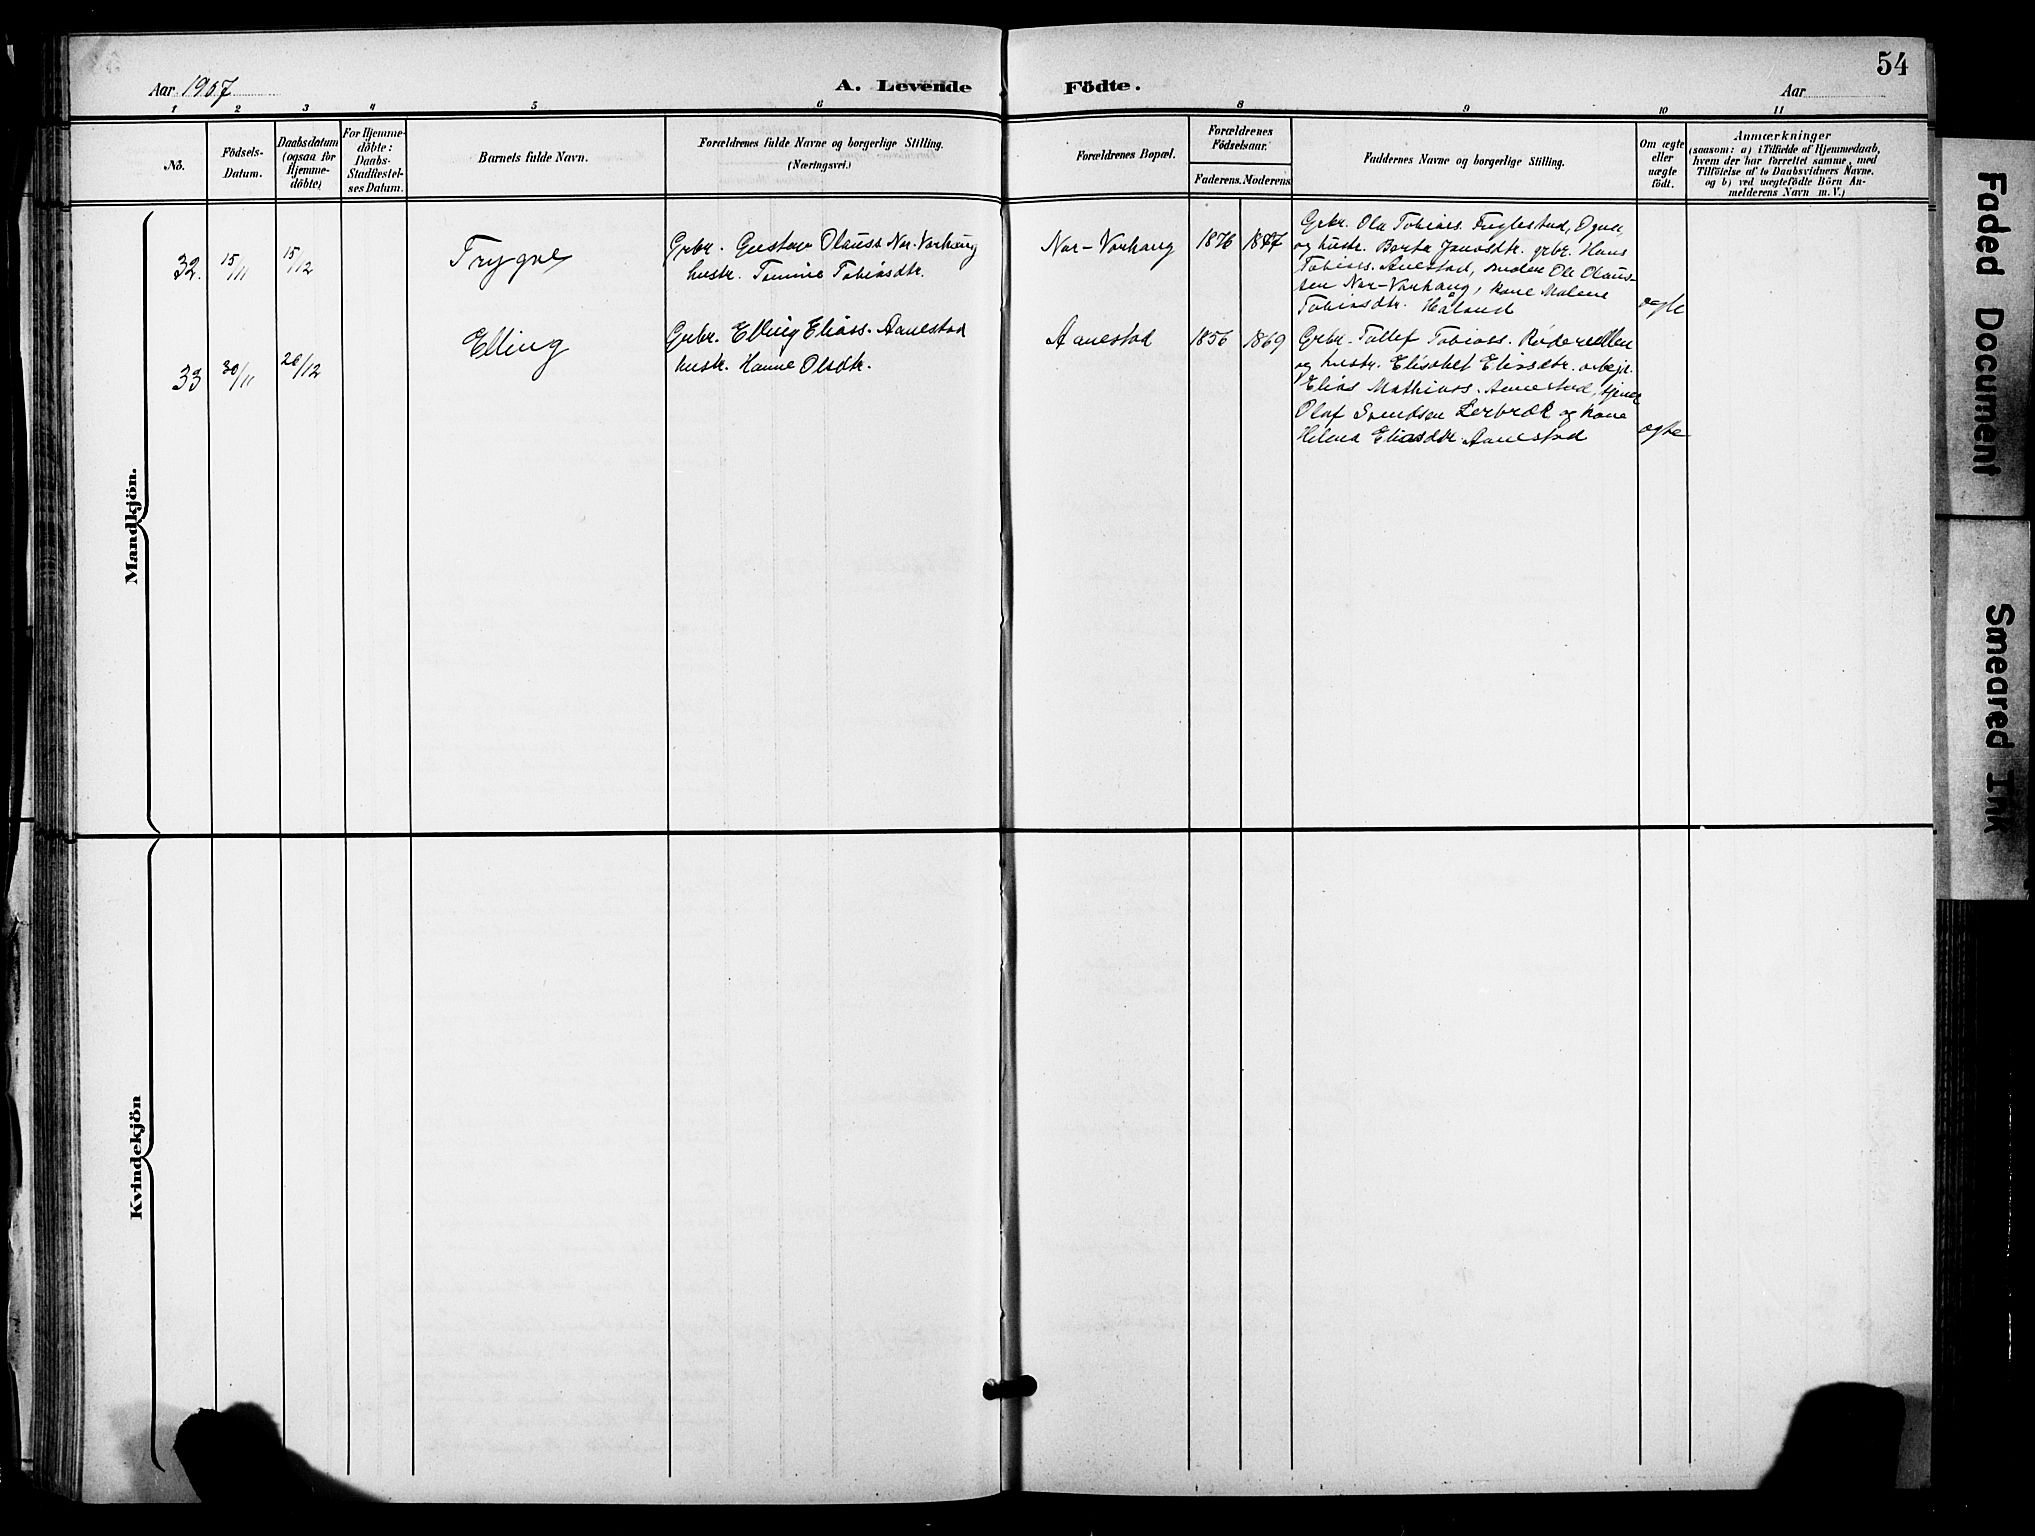 54
Aar 1907
A. Levende Födte.
Aar
1 2 3 4 5 6 8 9 10 11
No.
Födsels-
Datum.
Daabsdatum
(ogsaa for
Hjemme-
döbte)
For Hjemme-
döbte:
Daabs-
Stadfestel-
ses Datum.
Barnets fulde Navn.
Forældrenes fulde Navne og borgerlige Stilling.
(Næringsvei.)
Forældrenes Bopæl.
Forældrenes
Födselsaar.
Faderens. Moderens
Faddernes Navne og borgerlige Stilling.
Om ægte
eller
uægte
födt.
Anmærkninger
(saasom: a) i Tilfælde af Hjemmedaab,
hvem der har forrettet samme, med
Tilföielse af to Daabsvidners Navne.
og b) ved uægtefödte Börn An-
melderens Navn m. V.)
Mandkjön.
32. 15/11 15/12 Trygve
Grbr. Gustav Olauss Nor-Varhaug
hustr. Tomine Tobiasdtr.
Nor-Varhaug 1876 1877
Grbr. Ola Tobiass. Fuglestad, Ogna,
og hustr. Berta Jonasdtr. grbr. Hans
Tobiass. Anestad, Ole Olaus-
sen Nor-Varhaug, kone Malene
Tobiasdtr. Håland
ægte
33 30/11 26/12 Elling
Grbr. Elling Eliass. Aanestad
hustr. Hanne Olsdtr.
Aanestad 1856 1869
Grbr. Tollef Tobiass.
og hustr. Elisabet Eliasdtr. arbejr.
Elias Mathiass. Aanestad, tjener
Olaf Svendsen Lerbræk og kone
Helena Eliasdtr Aanestad
ægte
Kvindekjön
Faded Document
Smeared Ink